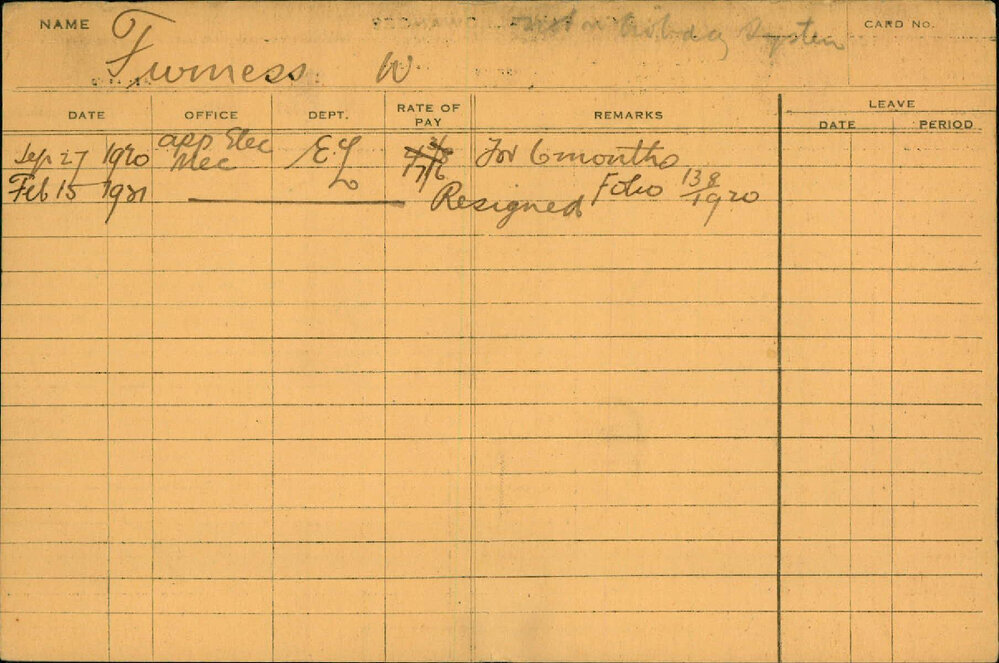 NAME Furness W. CARD No.
System
DATE OFFICE DEPT. RATE OF PAY REMARKS LEAVE
DATE PERIOD
Sep 27 1920 app Elec Mec E.L For 6 months
Feb 15 1921 Resigned Folio 138/1920